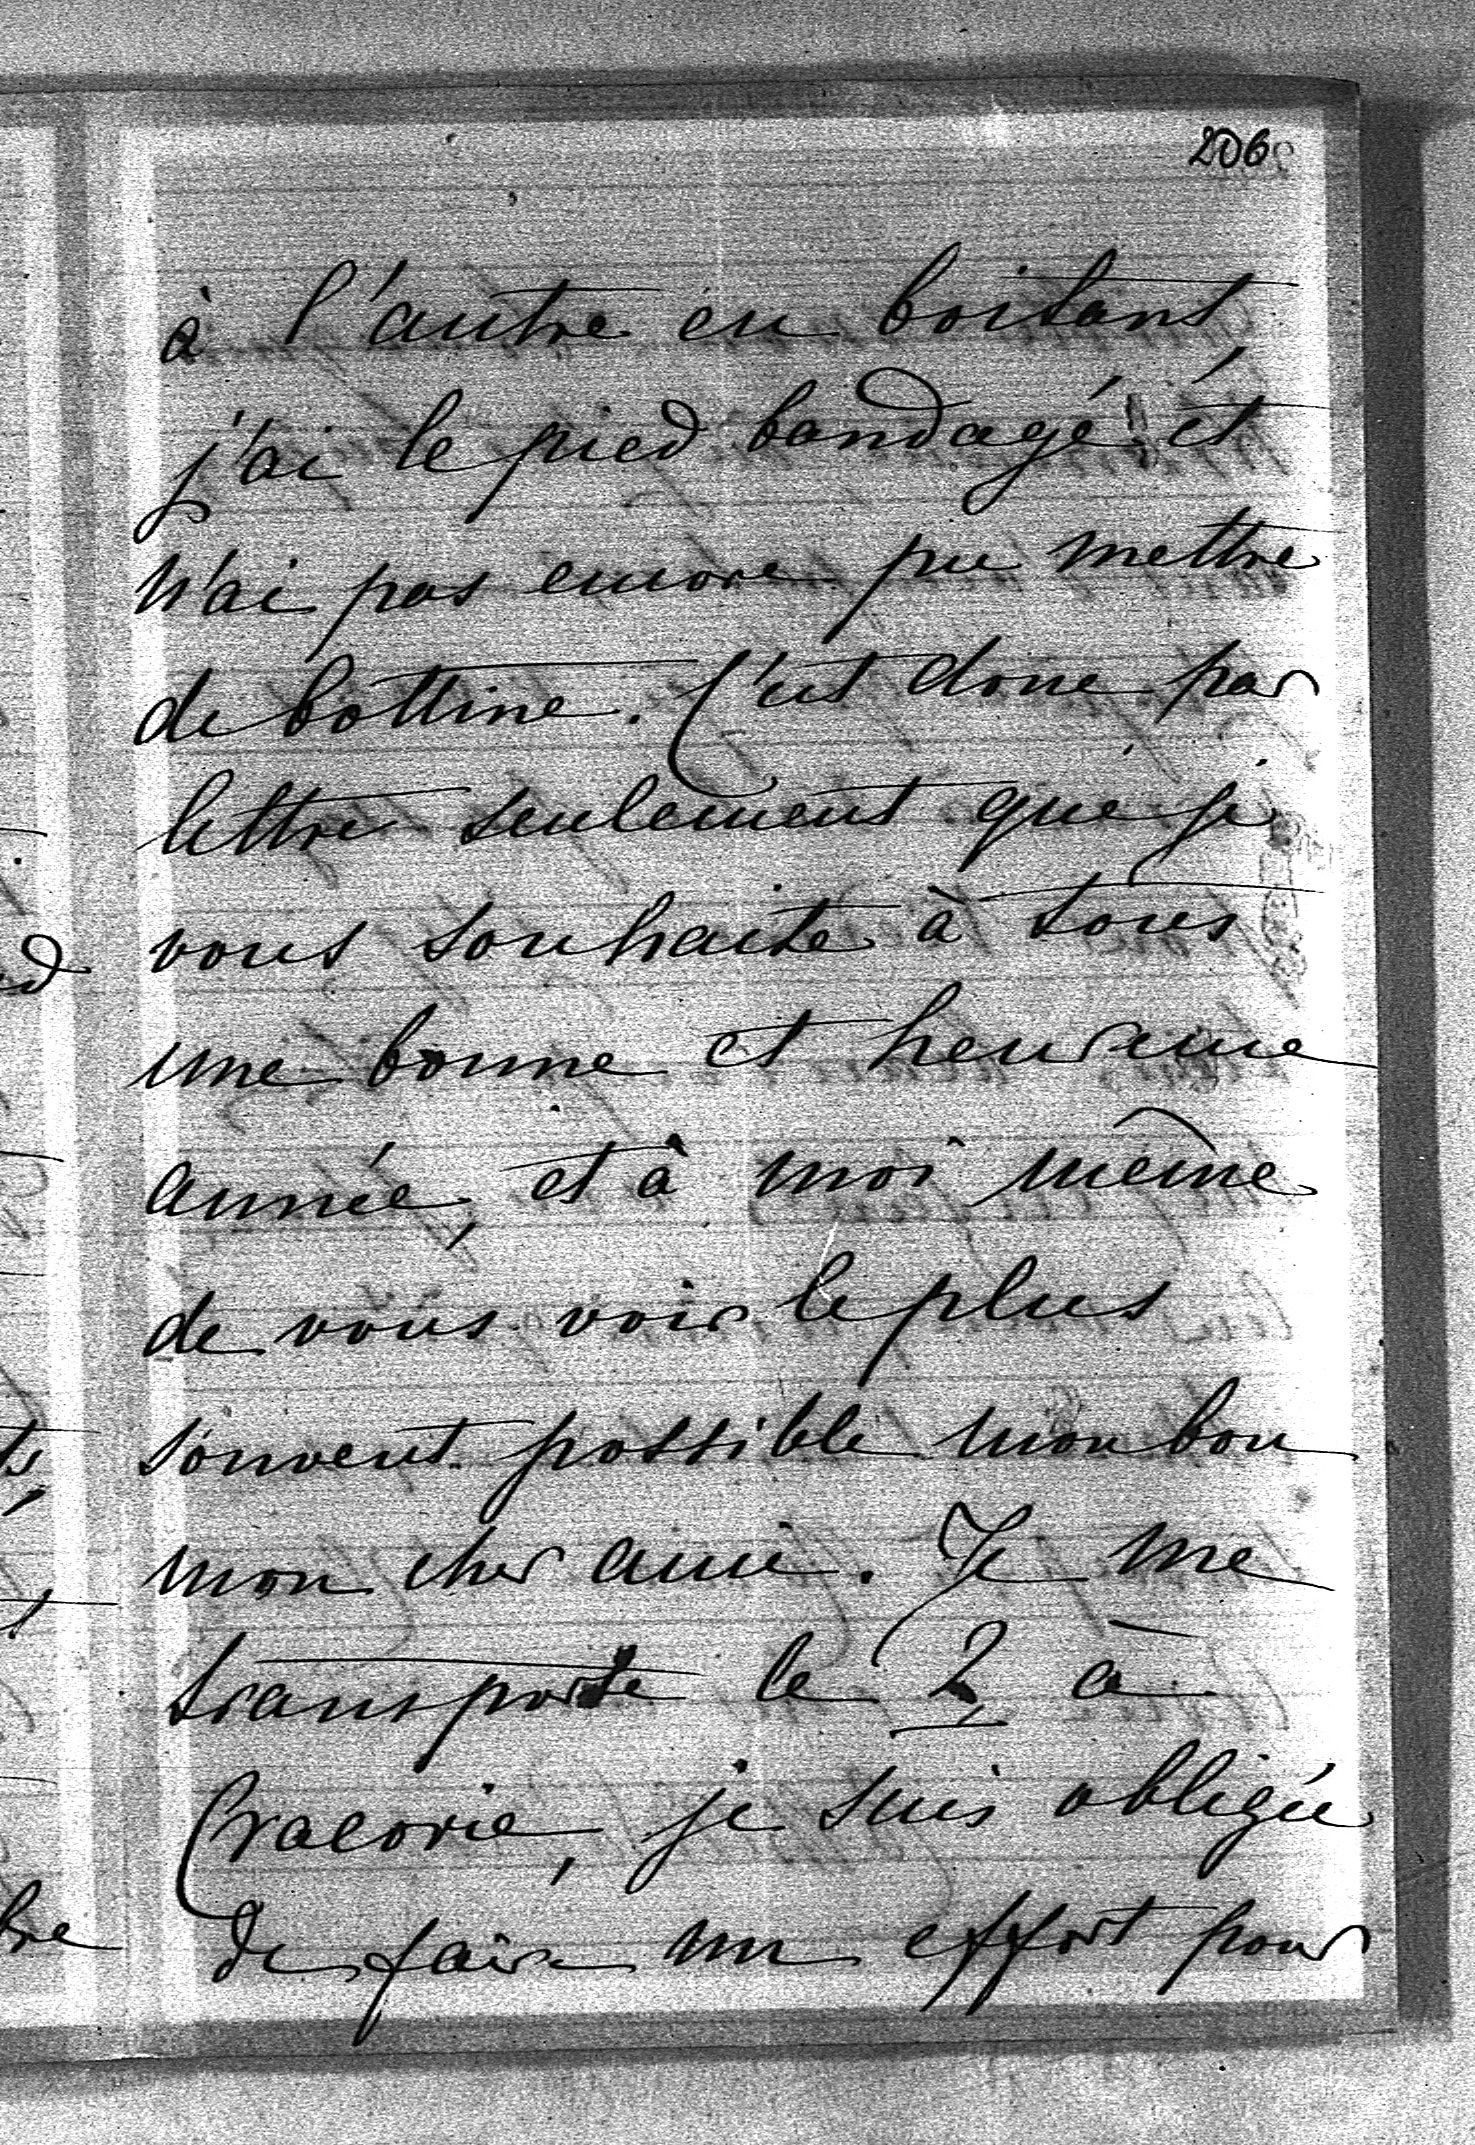 206
à l'autre en boitant
j'ai le pied bandagé et
n'ai pas encore pu mettre
de bottine. C'est donc par
lettre seulement que je
vous souhaite à tous
une bonne et heureuse
année, et à moi même
de vous voir le plus
souvent possible mon bon
mon cher ami. Je me
transporte le 2 à
Cracovie, je suis obligée
de faire un effort pour